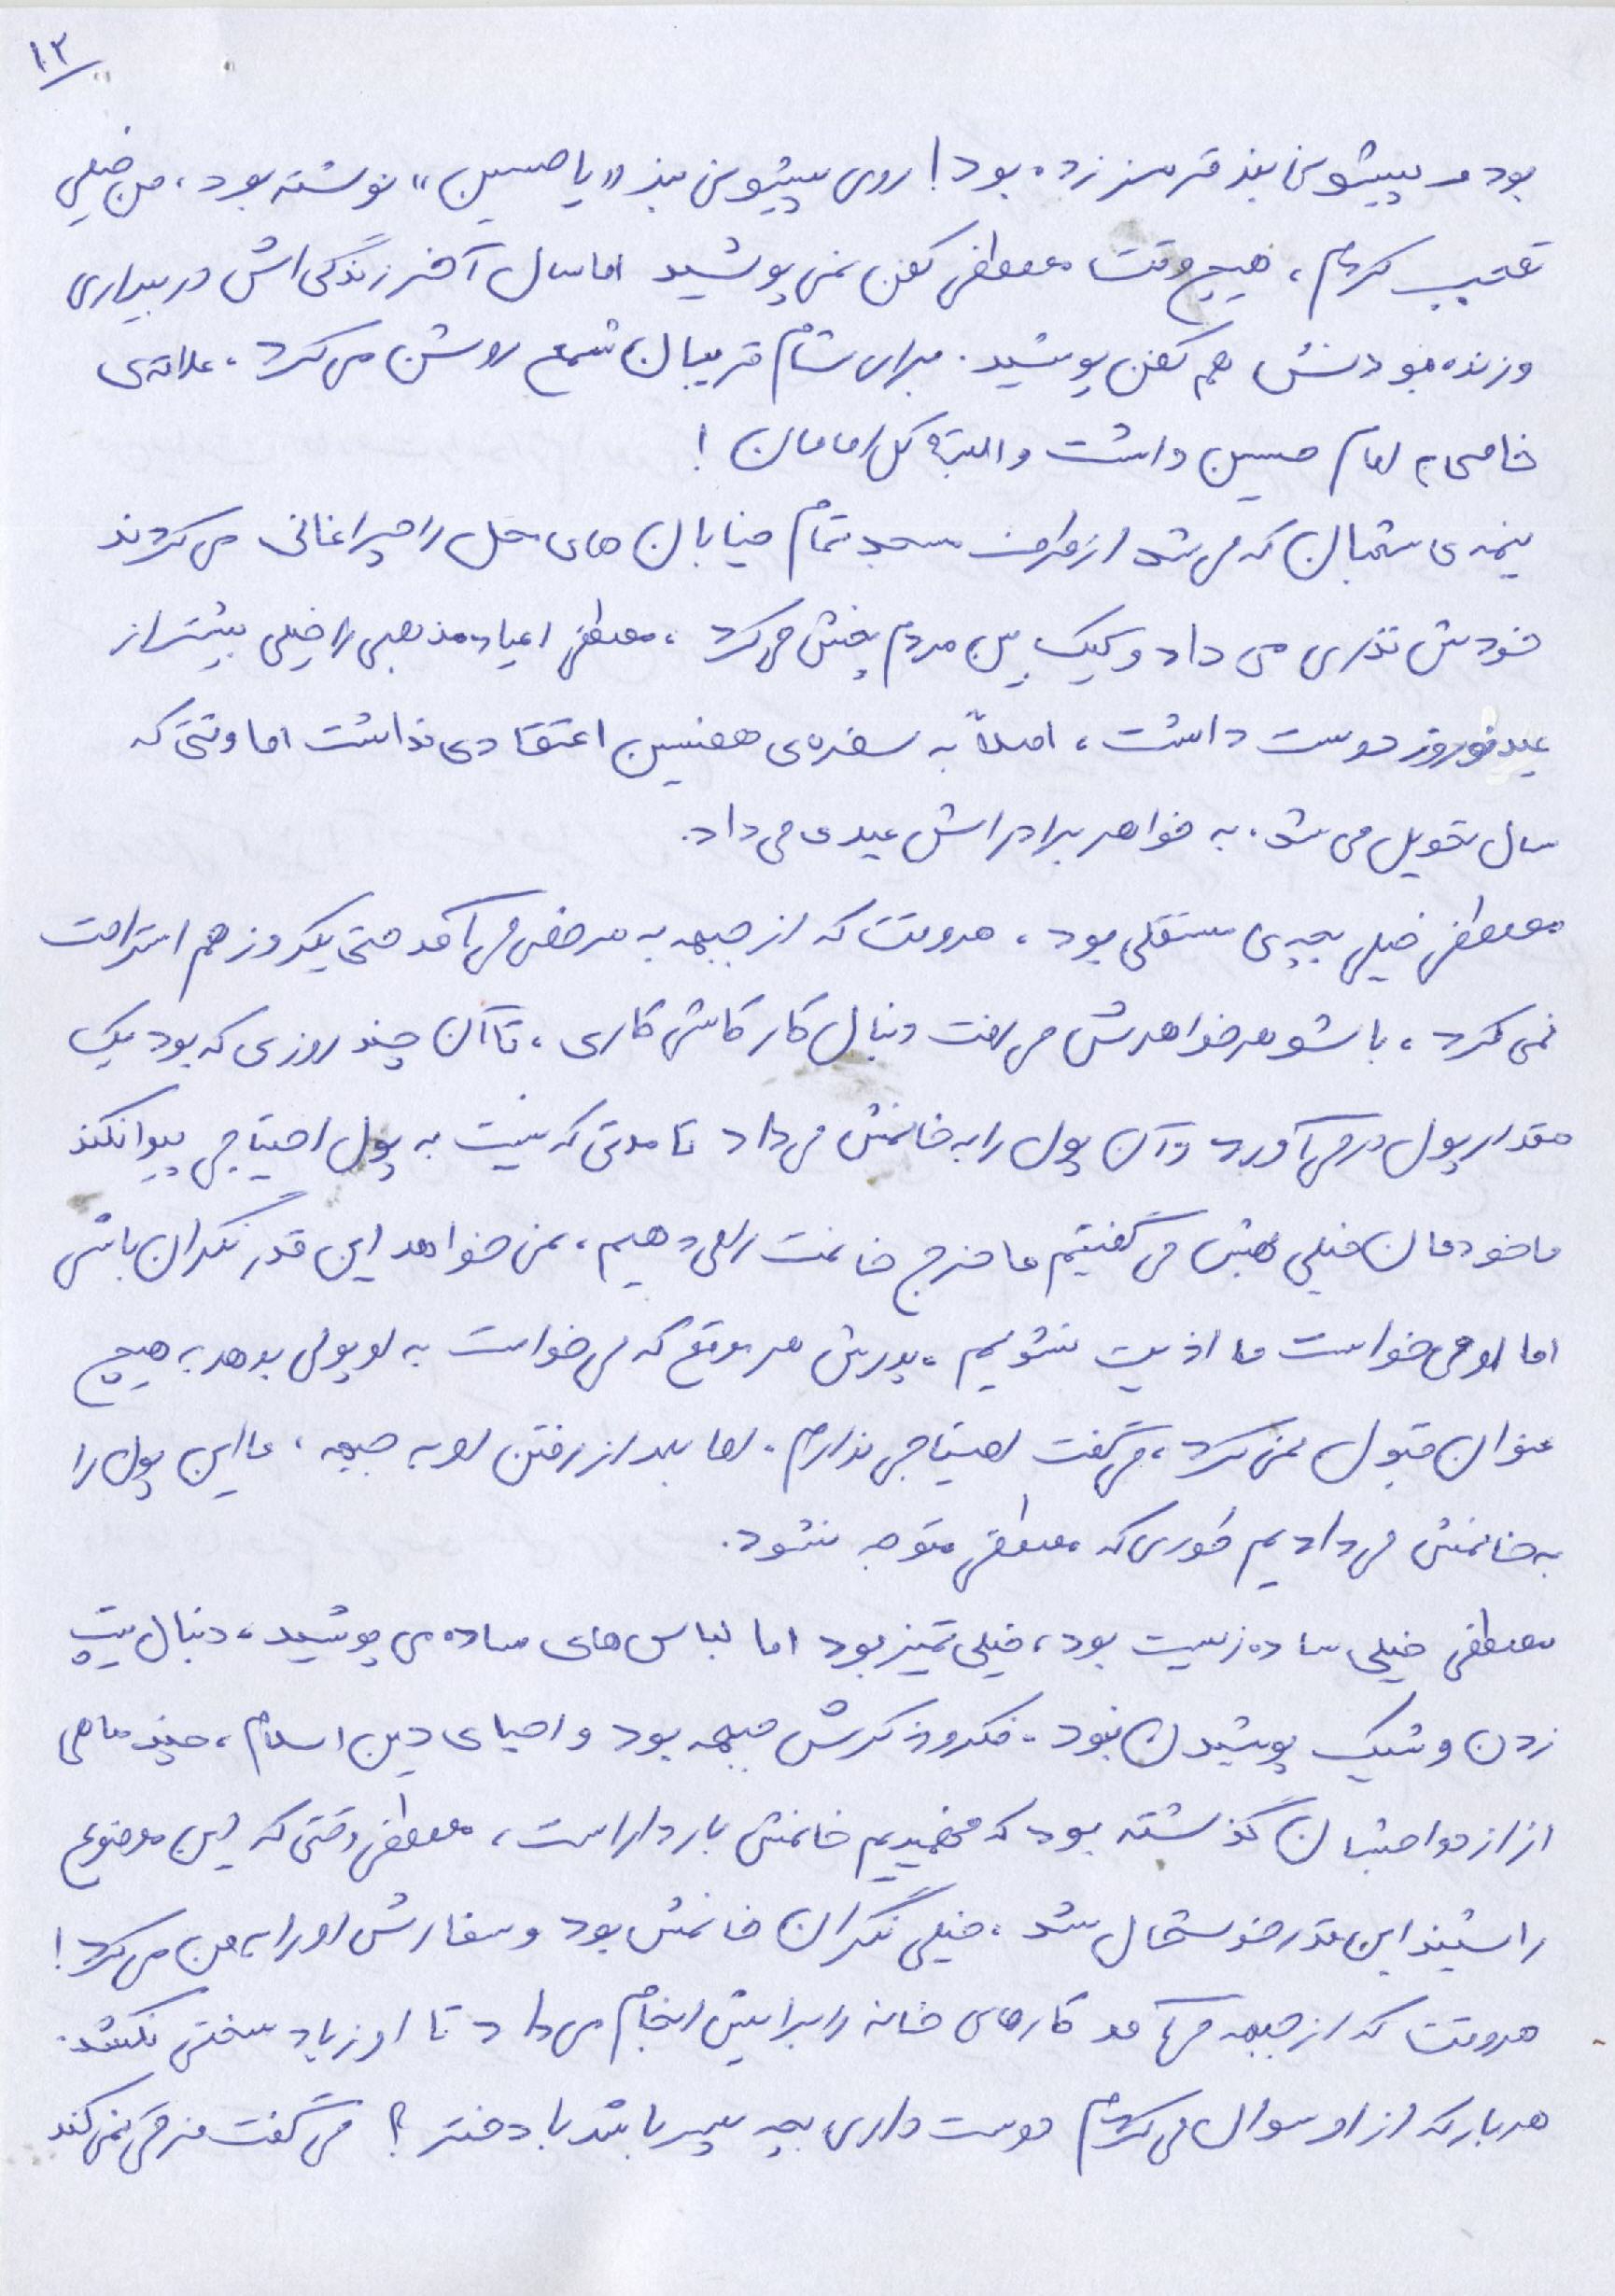 ۱۲
بود و پیشونی بند قرمز زده بود! روی پیشونی بند «یا حسین» نوشته بود، من خیلی
تعجب کردم، هیچ وقت مصطفی کفن نمی پوشید اما سال آخر زندگی اش در بیداری
و زنده بودنش هم کفن پوشید. برای شام غریبان شمع روشن می کرد. علاقه‌ی
خاصی به امام حسین داشت و البته کل امامان!
نیمه ی شعبان که می شد از طرف مسجد تمام خیابان های محل را چراغانی می کردند
خودش نذری می داد و کیک بین مردم پخش می کرد، مصطفی اعیاد مذهبی را خیلی بیشتر از
عید نوروز دوست داشت، اصلاً به سفره‌ی هفسین اعتقادی نداشت اما وقتی که
سال تحویل می شد. به خواهر برادراش عیدی می داد.
مصطفی خیلی بچه ی مستقلی بود، هروقت که از جبهه به مرخصی می آمد حتی یکروز هم استراحت
نمی کرد، با شوهر خواهرش می رفت دنبال کار کاشی کاری، تا آن چند روزی که بود یک
مقدار پول در می آورد و آن پول را به خانمش می داد تا مدتی که نیست به پول احتیاجی پیدا نکند
ما خودمان خیلی بهش می گفتیم ما خرج خانمت را می دهیم، نمی خواهد این قدر نگران باشی
اما او می خواست ما اذیت نشویم، پدرش هر موقع که می خواست به او پولی بدهد به هیچ
عنوان قبول نمی کرد، می گفت احتیاجی ندارم. اما بعد از رفتن او به جبهه، ما این پول را
به خانمش می دادیم طوری که مصطفی متوجه نشود.
مصطفی خیلی ساده زیست بود، خیلی تمیز بود اما لباس های ساده می پوشید، دنبال تیپ
زدن و شیک پوشیدن نبود. فکر و ذکرش جبهه بود و احیای دین اسلام، چند ماهی
از ازدواجشان گذشته بود که فهمیدیم خانمش باردار است، مصطفی وقتی که این موضوع
را شنید این قدر خوشحال شد، خیلی نگران خانمش بود و سفارش او را به من می کرد!
هروقت که از جبهه می آمد کارهای خانه را برایش انجام می داد تا او زیاد سختی نکشد.
هر بار که از او سوال می کردم دوست داری بچه پسر باشد یا دختر؟ می گفت فرقی نمی کند